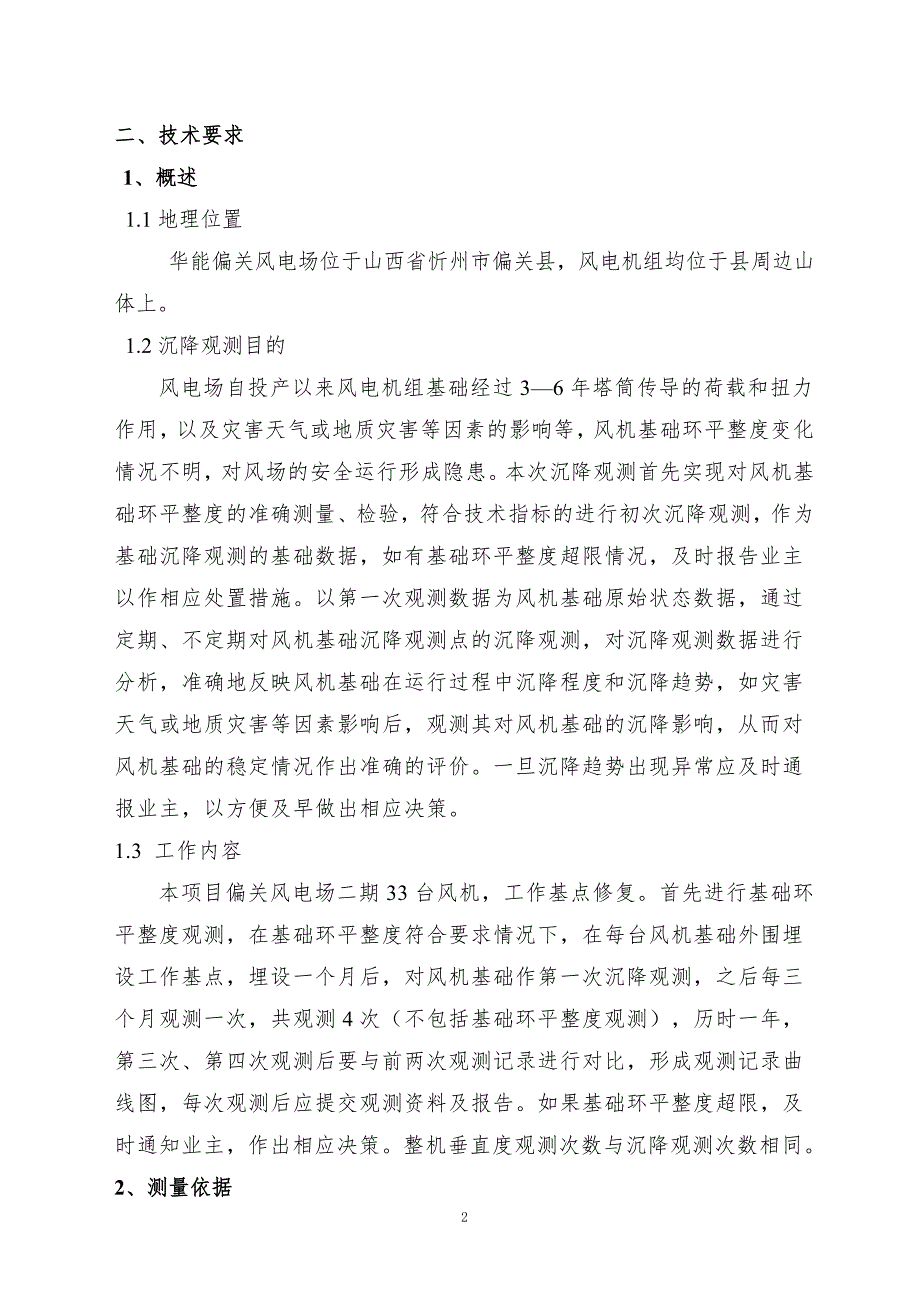 二、技术要求
1、概述
1.1 地理位置
华能偏关风电场位于山西省忻州市偏关县，风电机组均位于县周边山
体上。
1.2 沉降观测目的
风电场自投产以来风电机组基础经过 3—6 年塔筒传导的荷载和扭力
作用，以及灾害天气或地质灾害等因素的影响等，风机基础环平整度变化
情况不明，对风场的安全运行形成隐患。本次沉降观测首先实现对风机基
础环平整度的准确测量、检验，符合技术指标的进行初次沉降观测，作为
基础沉降观测的基础数据，如有基础环平整度超限情况，及时报告业主
以作相应处置措施。以第一次观测数据为风机基础原始状态数据，通过
定期、不定期对风机基础沉降观测点的沉降观测，对沉降观测数据进行
分析，准确地反映风机基础在运行过程中沉降程度和沉降趋势，如灾害
天气或地质灾害等因素影响后，观测其对风机基础的沉降影响，从而对
风机基础的稳定情况作出准确的评价。一旦沉降趋势出现异常应及时通
报业主，以方便及早做出相应决策。
1.3 工作内容
本项目偏关风电场二期 33 台风机，工作基点修复。首先进行基础环
平整度观测，在基础环平整度符合要求情况下，在每台风机基础外围埋
设工作基点，埋设一个月后，对风机基础作第一次沉降观测，之后每三
个月观测一次，共观测 4 次（不包括基础环平整度观测），历时一年，
第三次、第四次观测后要与前两次观测记录进行对比，形成观测记录曲
线图，每次观测后应提交观测资料及报告。如果基础环平整度超限，及
时通知业主，作出相应决策。整机垂直度观测次数与沉降观测次数相同。
2、测量依据
2